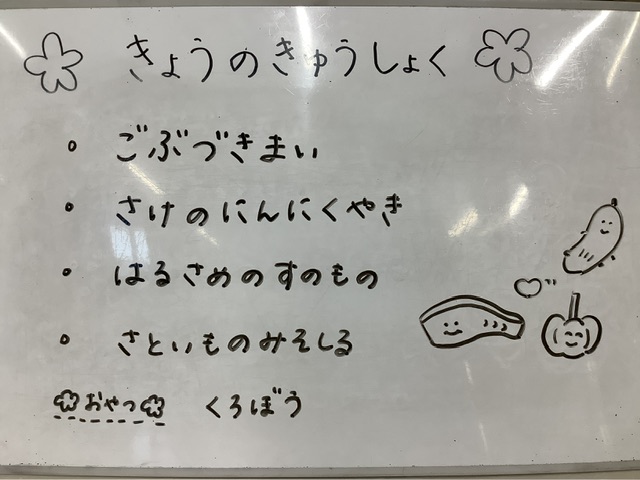 きょうのきゅうしょく
• ごぶづきまい
• さけのにんにくやき
• はるさめのすのもの
• さといものみそしる
おやつ くろぼう